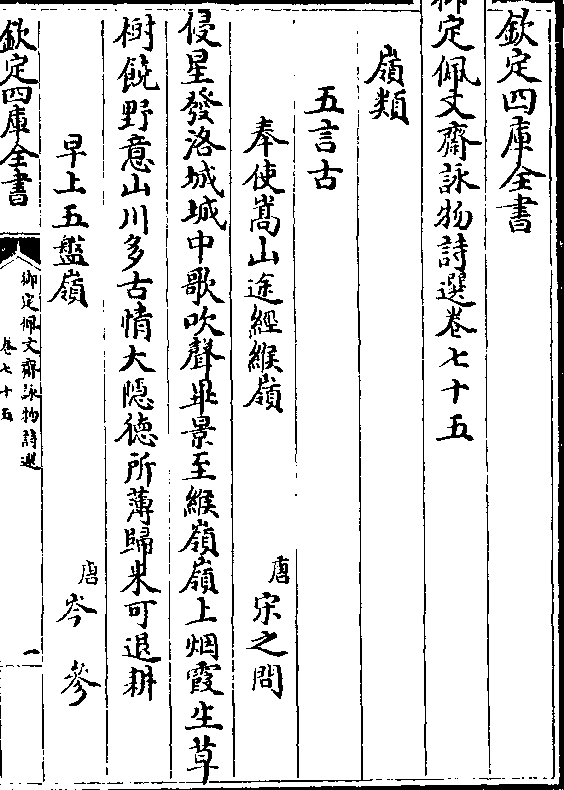 欽定四庫全書
御定佩文齋詠物詩選卷七十五
嶺類
五言古
奉使嵩山途經緱嶺 唐 宋之問
侵星發洛城城中歌吹聲畢景至緱嶺嶺上烟霞生草
樹饒野意山川多古情大隱德所薄歸来可退耕
早上五盤嶺 唐 岑參
欽定四庫全書
御定佩文齋詠物詩選
卷七十五
一